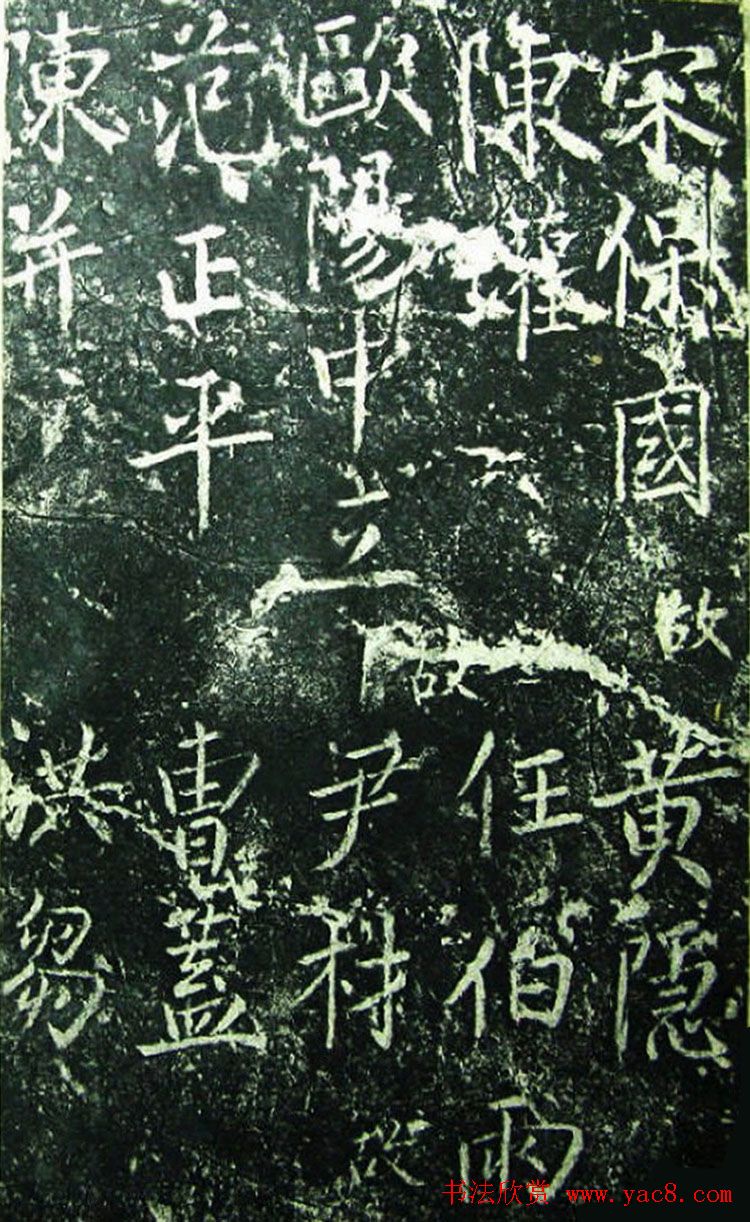 宋保國 故 黄隱
陳瓘 任伯雨
歐陽中立 故 尹材 故
范正平 曹蓋
陳并 洪芻
书法欣赏 www.yac8.com